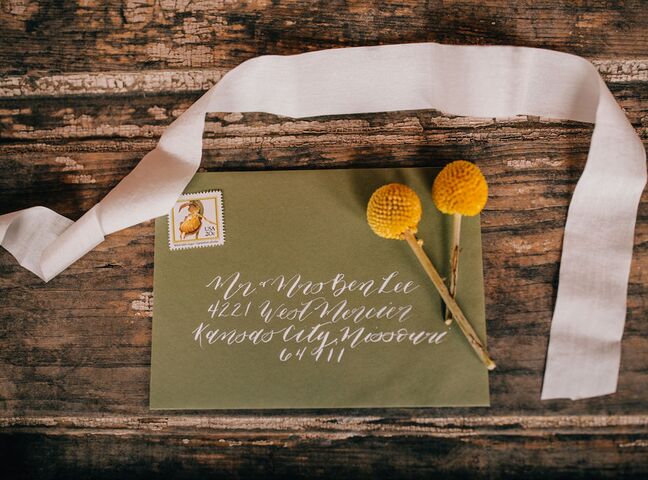 USA
20c
Mr & Mrs Ben Lee
4221 West Mercier
Kansas City, Missouri
64111